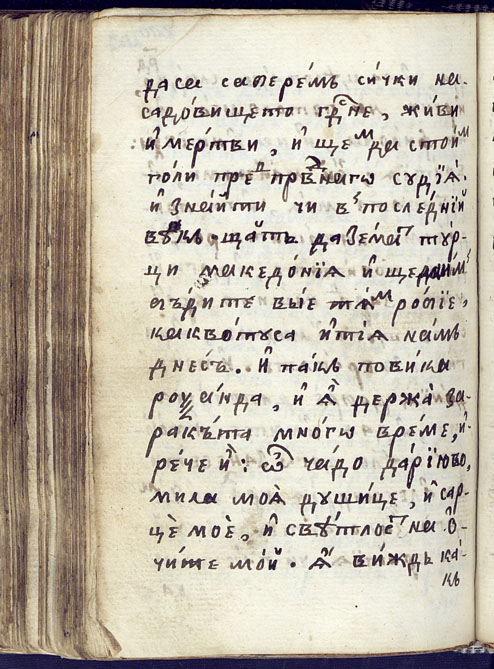 даса саберемъ си́чки на-
садо́вището гдⷭ҇не, жи́ви
и҆ ме́ртви, и҆ щеⷨ да стои́ⷨ
голи преⷣ пра́вⷣнаго судїѧ̀.
и҆ зна́йти чи въ последнїй
вѣкъ щатъ да зематъ тꙋ́р-
ци македо́нїѧ и҆ ще
ви́дите вы́е роѯїе,
какво́тꙋса и҆ тїѧ на́мъ
дне́съ. и҆ па́къ пови́ка
роѯа́нда, и҆ ѧ҆̀ держа̀ за
рака́та мно́гѡ вре́ме, и҆
ре́че и҆̀: ѽ ча́до да́рїюво,
мила моѧ̀ дꙋши́це, и҆ сар-
це̑ моѐ, и҆ свѣ́тлостъ на ѻ҆-
чи́те мо́й. ѧ҆̀ ви́ждь ка́-
къ